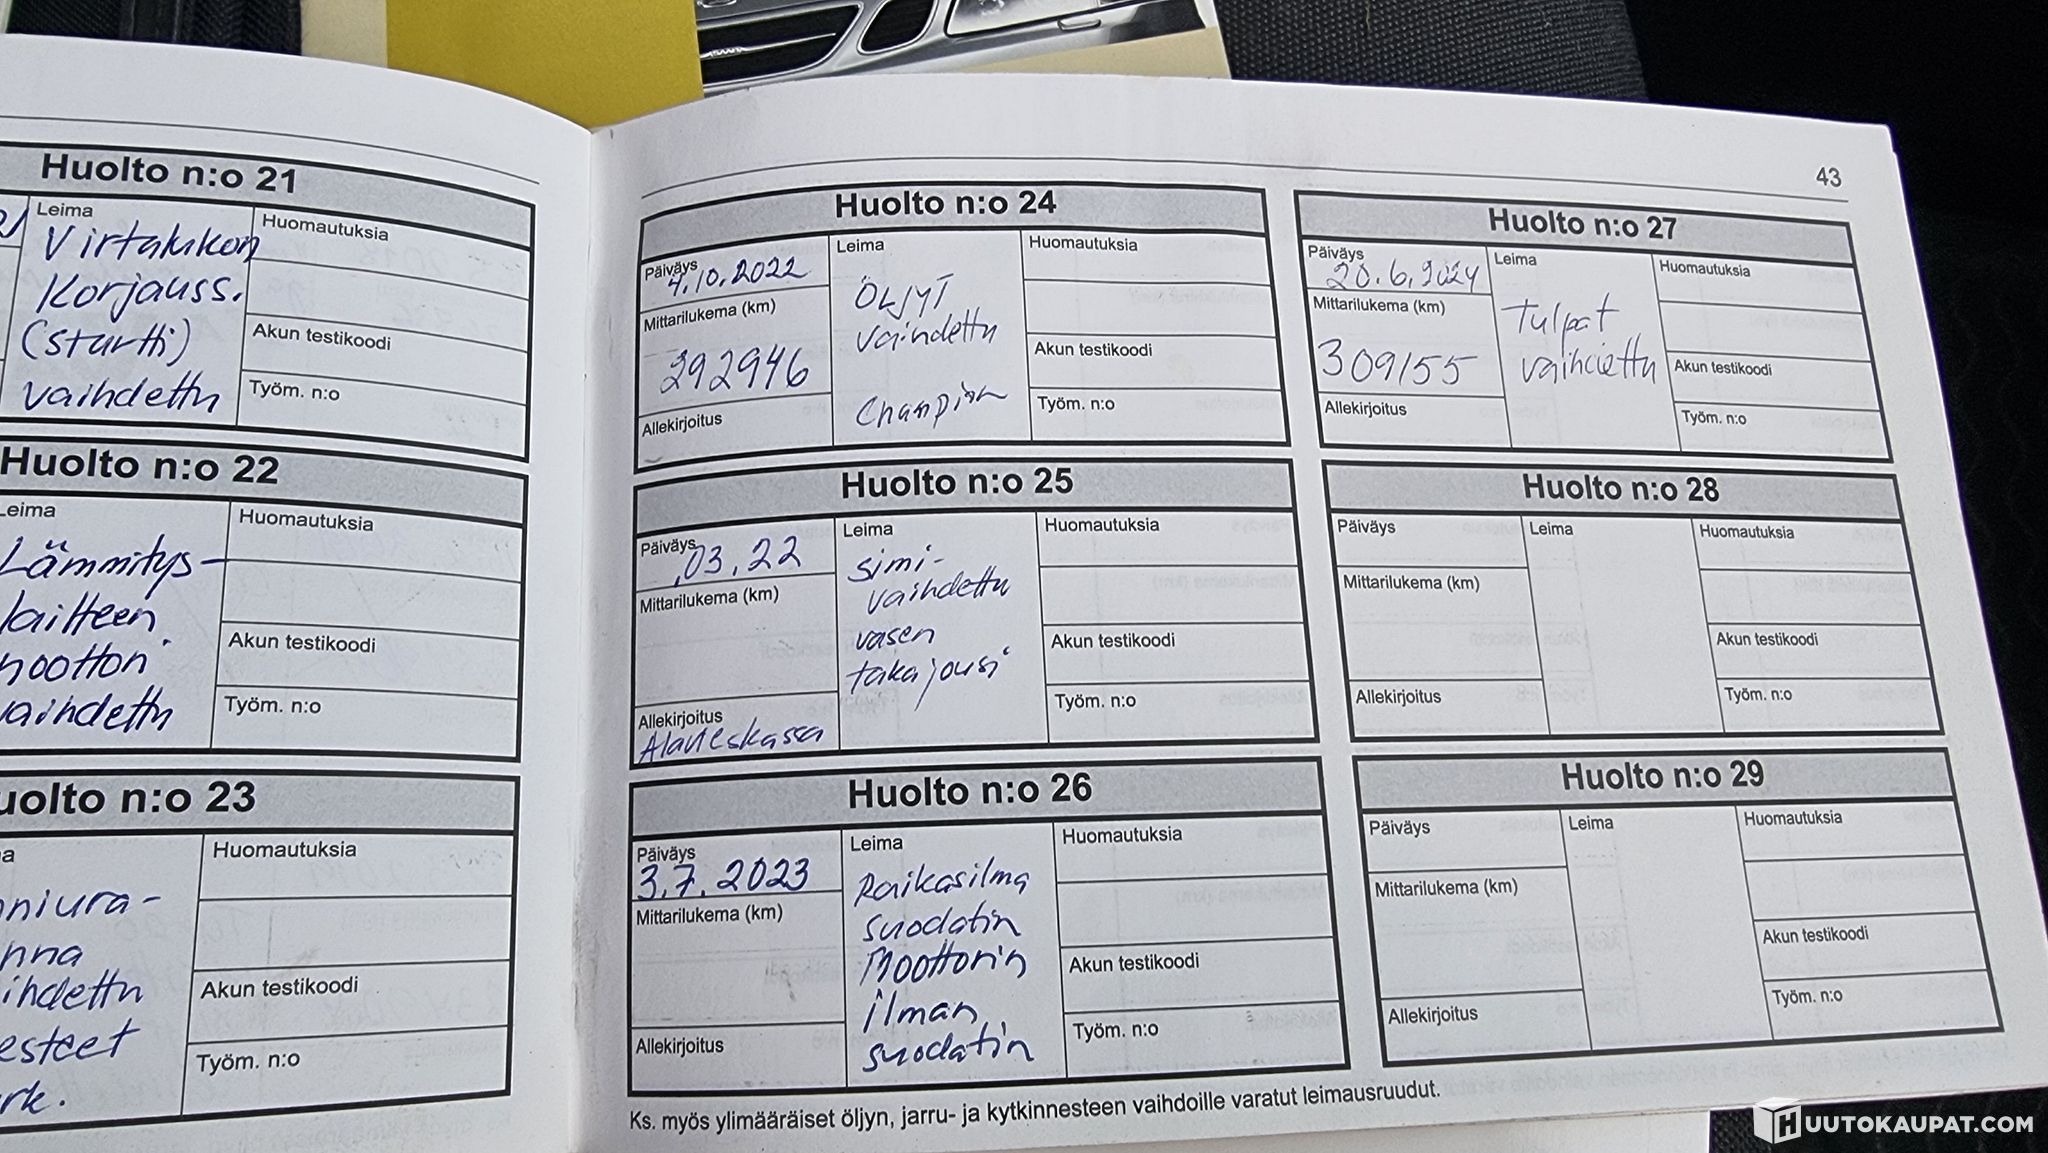 Huolto n:o 21
Leima
Virtalukon
Korjauss.
(startti)
vaihdettu
Huomautuksia
Akun testikoodi
Työm. n:o
Huolto n:o 22
Leima
Lämmitys-
laitteen
vaihdettu
Huomautuksia
Akun testikoodi
Työm. n:o
uolto n:o 23
a
niura-
nna
ihdettu
esteet
rk.
Huomautuksia
Akun testikoodi
Työm. n:o
43
Huolto n:o 24
Päiväys
4.10.2022
Mittarilukema (km)
292946
Allekirjoitus
Leima
ÖLJYT
vaihdettu
Champion
Huomautuksia
Akun testikoodi
Työm. n:o
Huolto n:o 25
Päiväys
.03.22
Mittarilukema (km)
Allekirjoitus
Alavieskassa
Leima
simi-
vaihdettu
vasen
takajousi
Huomautuksia
Akun testikoodi
Työm. n:o
Huolto n:o 26
Päiväys
3.7.2023
Mittarilukema (km)
Allekirjoitus
Leima
Raikasilma
suodatin
Moottorin
ilman
suodatin
Huomautuksia
Akun testikoodi
Työm. n:o
Huolto n:o 27
Päiväys
20.6.2024
Mittarilukema (km)
309155
Allekirjoitus
Leima
Tulpat
vaihdettu
Huomautuksia
Akun testikoodi
Työm. n:o
Huolto n:o 28
Päiväys
Mittarilukema (km)
Allekirjoitus
Leima
Huomautuksia
Akun testikoodi
Työm. n:o
Huolto n:o 29
Päiväys
Mittarilukema (km)
Allekirjoitus
Leima
Huomautuksia
Akun testikoodi
Työm. n:o
Ks. myös ylimääräiset öljyn, jarru- ja kytkinnesteen vaihdoille varatut leimausruudut.
HUUTOKAUPAT.COM